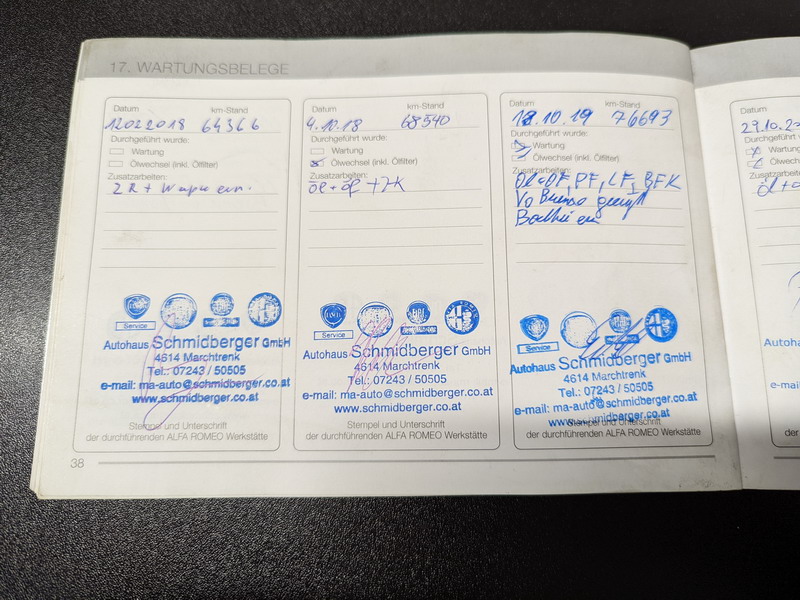 17. WARTUNGSBELEGE
Datum km-Stand
12022018 64366
Durchgeführt wurde:
Wartung
Ölwechsel (inkl. Ölfilter)
Zusatzarbeiten:
ZR +
Service
Autohaus Schmidberger GmbH
4614 Marchtrenk
Tel.: 07243 / 50505
e-mail: ma-auto@schmidberger.co.at
www.schmidberger.co.at
Stempel und Unterschrift
der durchführenden ALFA ROMEO Werkstätte
Datum km-Stand
4.10.18 68540
Durchgeführt wurde:
Wartung
Ölwechsel (inkl. Ölfilter)
Zusatzarbeiten:
öl + öf
Service
Autohaus Schmidberger GmbH
4614 Marchtrenk
Tel.: 07243 / 50505
e-mail: ma-auto@schmidberger.co.at
www.schmidberger.co.at
Stempel und Unterschrift
der durchführenden ALFA ROMEO Werkstätte
Datum km-Stand
.10.19 76693
Durchgeführt wurde:
Wartung
Ölwechsel (inkl. Ölfilter)
Zusatzarbeiten:
PF, LF, BFK
Service
Autohaus Schmidberger GmbH
4614 Marchtrenk
Tel.: 07243 / 50505
e-mail: ma-auto@schmidberger.co.at
Stempel und Unterschrift
der durchführenden ALFA ROMEO Werkstätte
38
Datum
29.10.2
Durchgeführt
Wartung
Zusatzarbeiten:
Autohaus
e-mail: